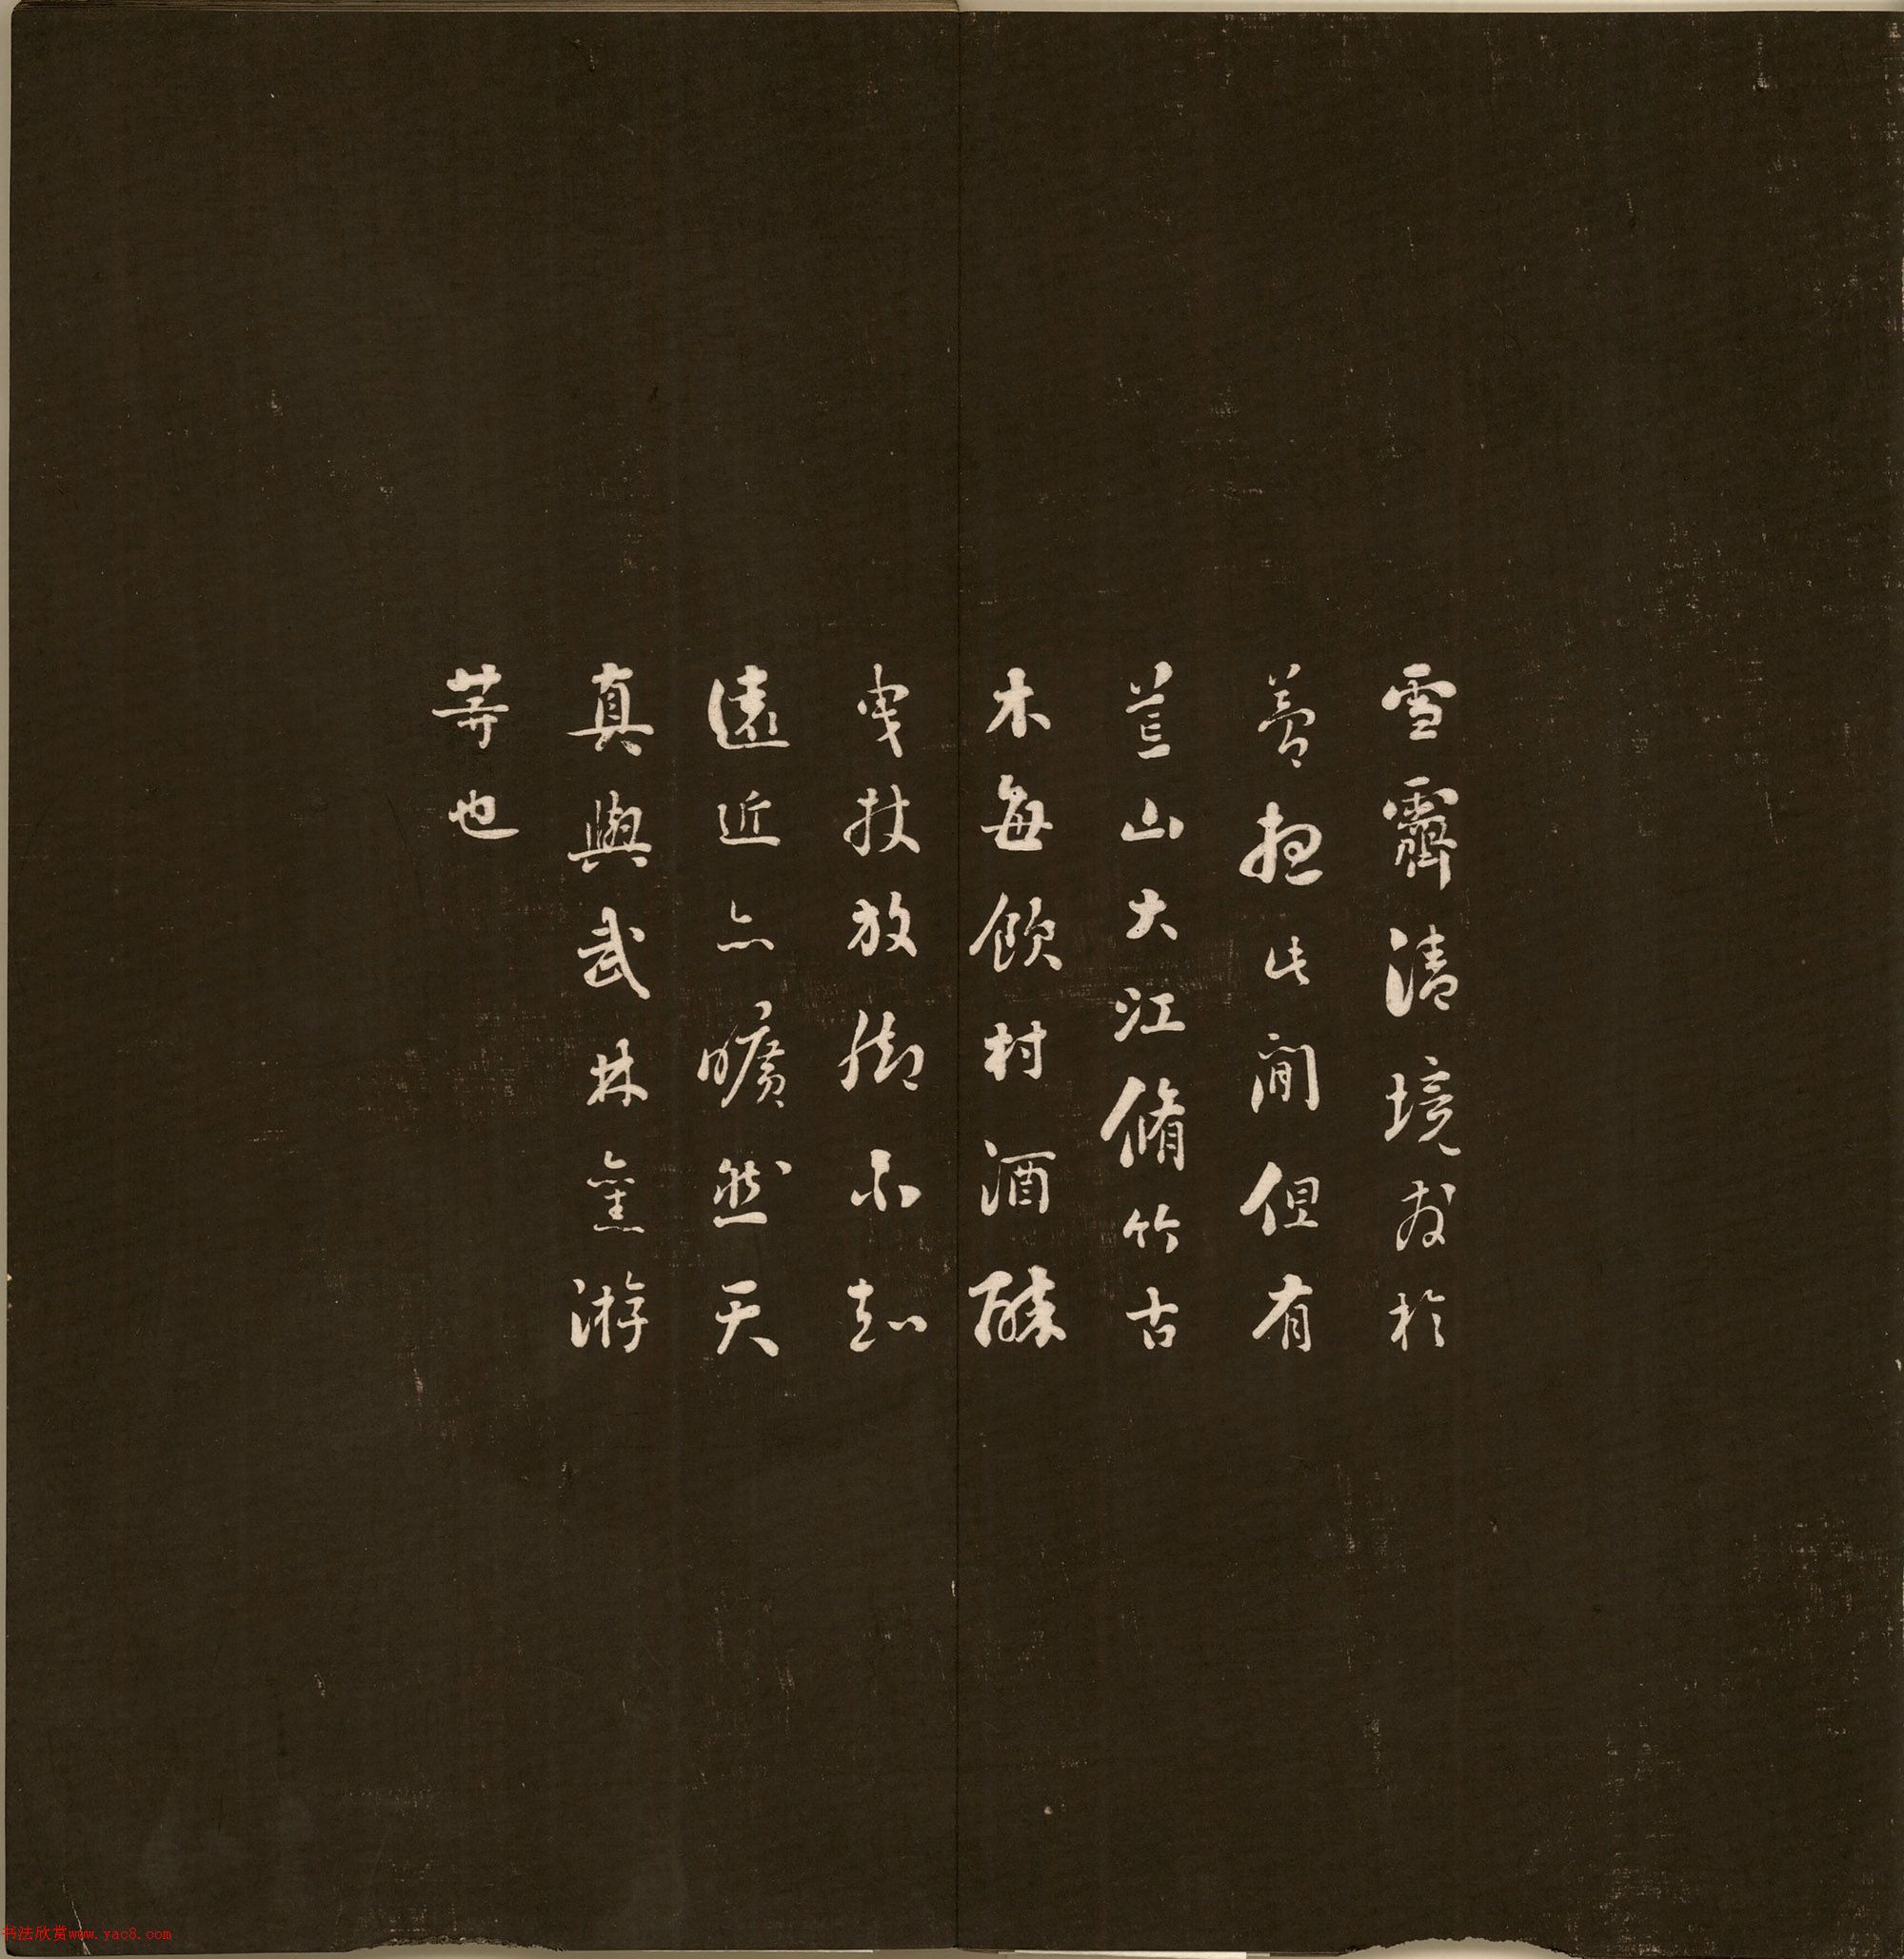 雪霽清境發於
夢想此間但有
荒山大江脩竹古
木每飲村酒醉
曳杖放腳不知
遠近亦曠然天
真與武林舊游
等也
书法欣赏www.yac8.com